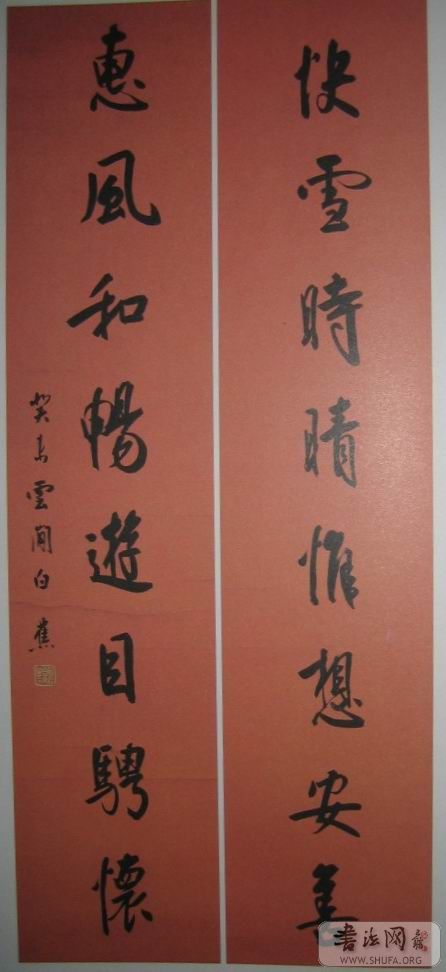 快雪時晴惟想安善
惠風和暢遊目騁懷
癸未雲間白蕉
書法网
WWW.SHUFA.ORG